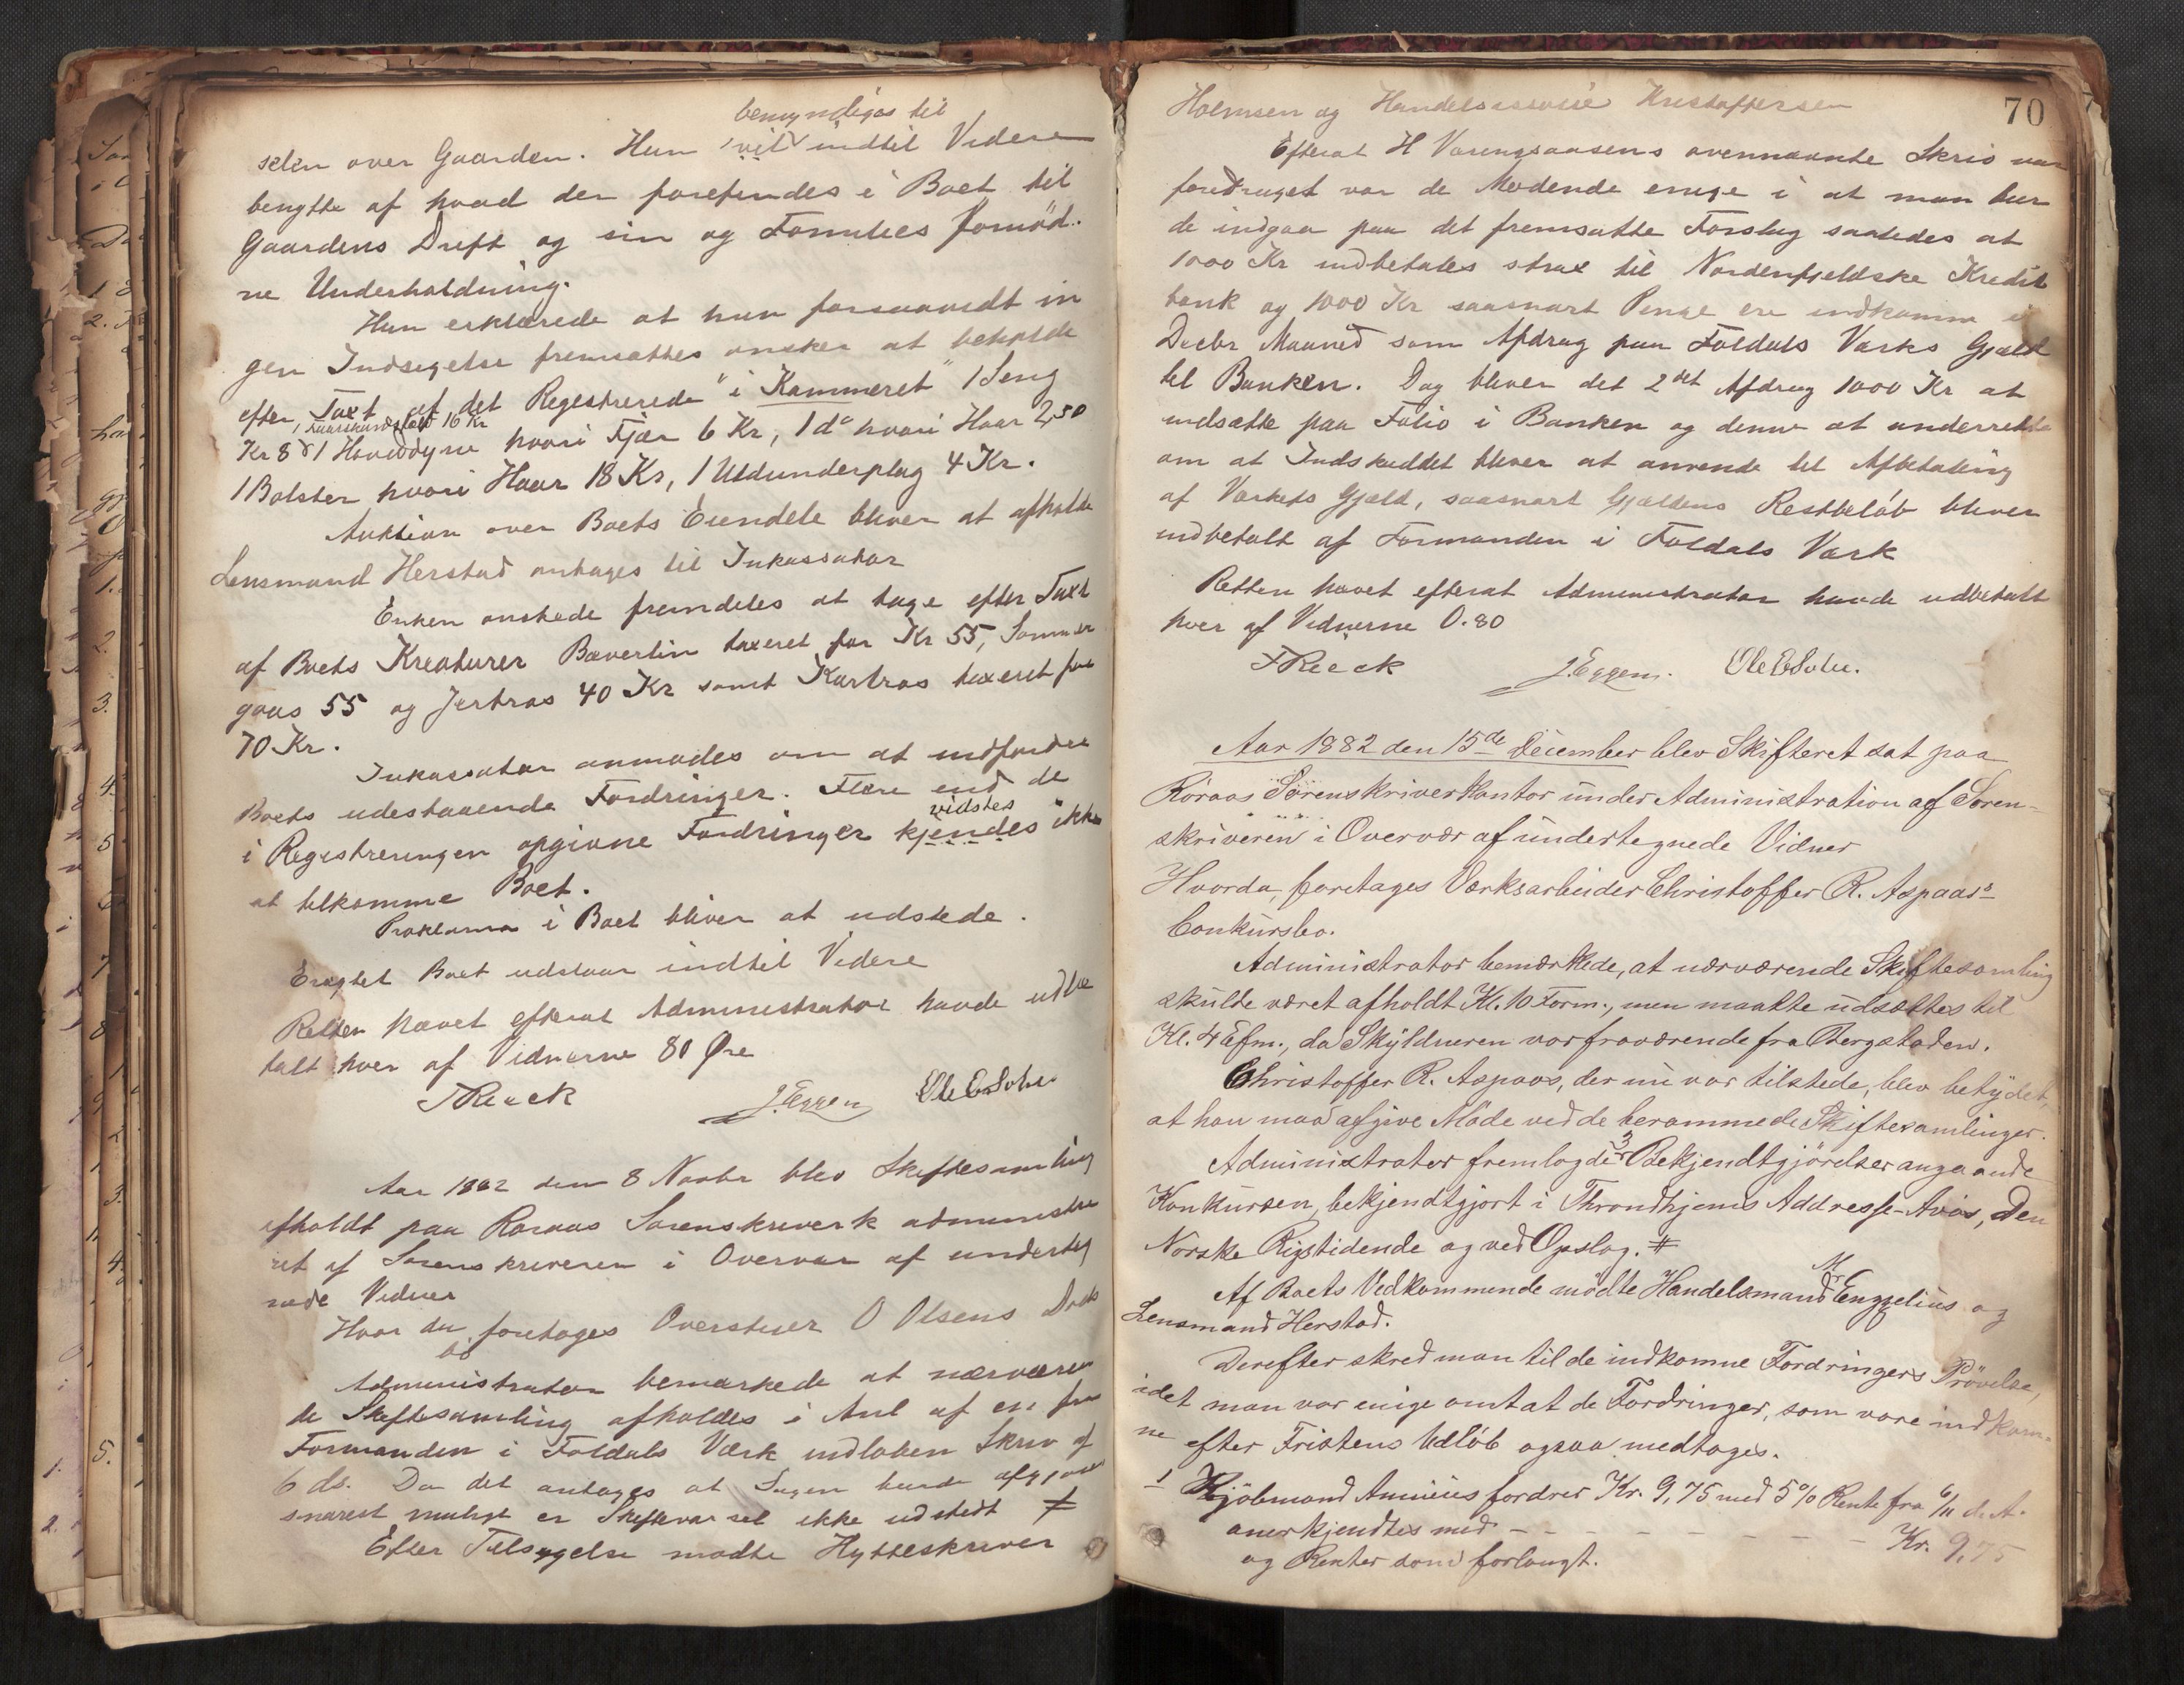 benyndiges til
selen over Gaarden. Hun vil indtil Videre
benytte af hvad der forefindes i Boet til
Gaardens Drift og sin og Families fornöd-
ne Underholdning.
Hun erklærede at hun forsaavidt in
gen Indsigelse fremsættes ønsker at beholde
efter Taxt af det Registrerede "i Kammeret" 1 Seng
Kr 8 1 Hoveddyne hvori Fjær 6 Kr, 1 do hvori Haar 2,50
1 Bolster hvori Haar 18 Kr, 1 Uldunderplag 4 Kr.
Auktion over Boets Eiendele bliver at afholde
Lensmand Herstad antages til Inkassator
Enken ønskede fremdeles at tage efter Taxt
af Boets Kreaturer Bæverlin taxeret for Kr 55, Sommer
gaas 55 og Jertros 40 Kr samt Kartros taxeret for
70 Kr.
Inkassator anmodes om at indfordre
Boets udestaaende Fordringer. Flere end de
vidstes
i Registreringen opgivne Fordringer kjendes ikke
at tilkomme Boet.
Proklama i Boet bliver at udstede.
Eragtet Boet udstaar indtil Videre
Retten hævet efterat Administrator havde udbe
talt hver af Vidnerne 80 Øre
FReeck J. Eggen Ole E Solie
Aar 1882 den 8 Novbr blev Skiftesamling
afholdt paa Røraas Sørenskriverk administre
ret af Sørenskriveren i Overvær af underteg
nede Vidner
Hvor da foretages Overstiger O Olsens Døds
bo
Administrator bemærkede at nærværen
de Skiftesamling afholdes i Anl af en fra
Formanden i Foldals Værk indløben Skriv af
6 ds. Da det antages at Sagen burde afgjøres
snarest muligt er Skiftevarsel ikke udstedt #
Efter Tilsigelse mødte Hytteskriver
70
Holmsen og Handelsbetjent Kristoffersen
Efterat H Vorengaasens ovennævnte Skriv var
foredraget var de Mødende enige i at man bur
de indgaa paa det fremsatte Forslag saaledes at
1000 Kr indbetales strax til Nordenfjeldske Kredit
bank og 1000 Kr saasnart Penge ere indkomne i
Decbr Maaned som Afdrag paa Foldals Værks Gjæld
til Banken. Dog bliver det 2det Afdrag 1000 Kr at
indsætte paa Folio i Banken og denne at underrette
om at Indskuddet bliver at anvende til Afbetaling
af Værkets Gjæld, saasnart Gjældens Restbeløb bliver
indbetalt af Formanden i Foldals Værk
Retten hævet efterat Administrator havde udbetalt
hver af Vidnerne 0.80
FReeck J. Eggen. Ole E Solie.
Aar 1882 den 15de December blev Skifteret sat paa
Röraas Sörenskriverkontor under Administration af Sören-
skriveren i Overvær af undertegnede Vidner
Hvorda, foretages Værksarbeider Christoffer R. Aspaas's
Conkursbo.
Administrator bemærkede, at nærværende Skiftesamling
skulde været afholdt Kl. 10 Form., men maatte udsættes til
Kl. 4 Efm., da Skyldneren var fraværende fra Bergstaden.
Christoffer R. Aspaas, der nu var tilstede, blev betydet,
at han maa afgive Möde ved de berammede Skiftesamlinger.
Administrator fremlagde 3 Bekjendtgjörelser angaaende
Konkursen, bekjendtgjort i Throndhjems Addresse-Avis, Den
Norske Rigstidende og ved Opslag. #
Af Boets Vedkommende mödte Handelsmand M Engzelius og
Lensmand Herstad.
Derefter skred man til de indkomne Fordringers Prövelse,
idet man var enige om at at de Fordringer, som vare indkom-
ne efter Fristens Udlöb ogsaa medtages.
1 Kjöbmand Amnéus fordrer Kr. 9,75 med 5% Rente fra 6/11 d. A.
anerkjendtes med - - - - - - - - - Kr. 9,75
og Renter som forlangt.